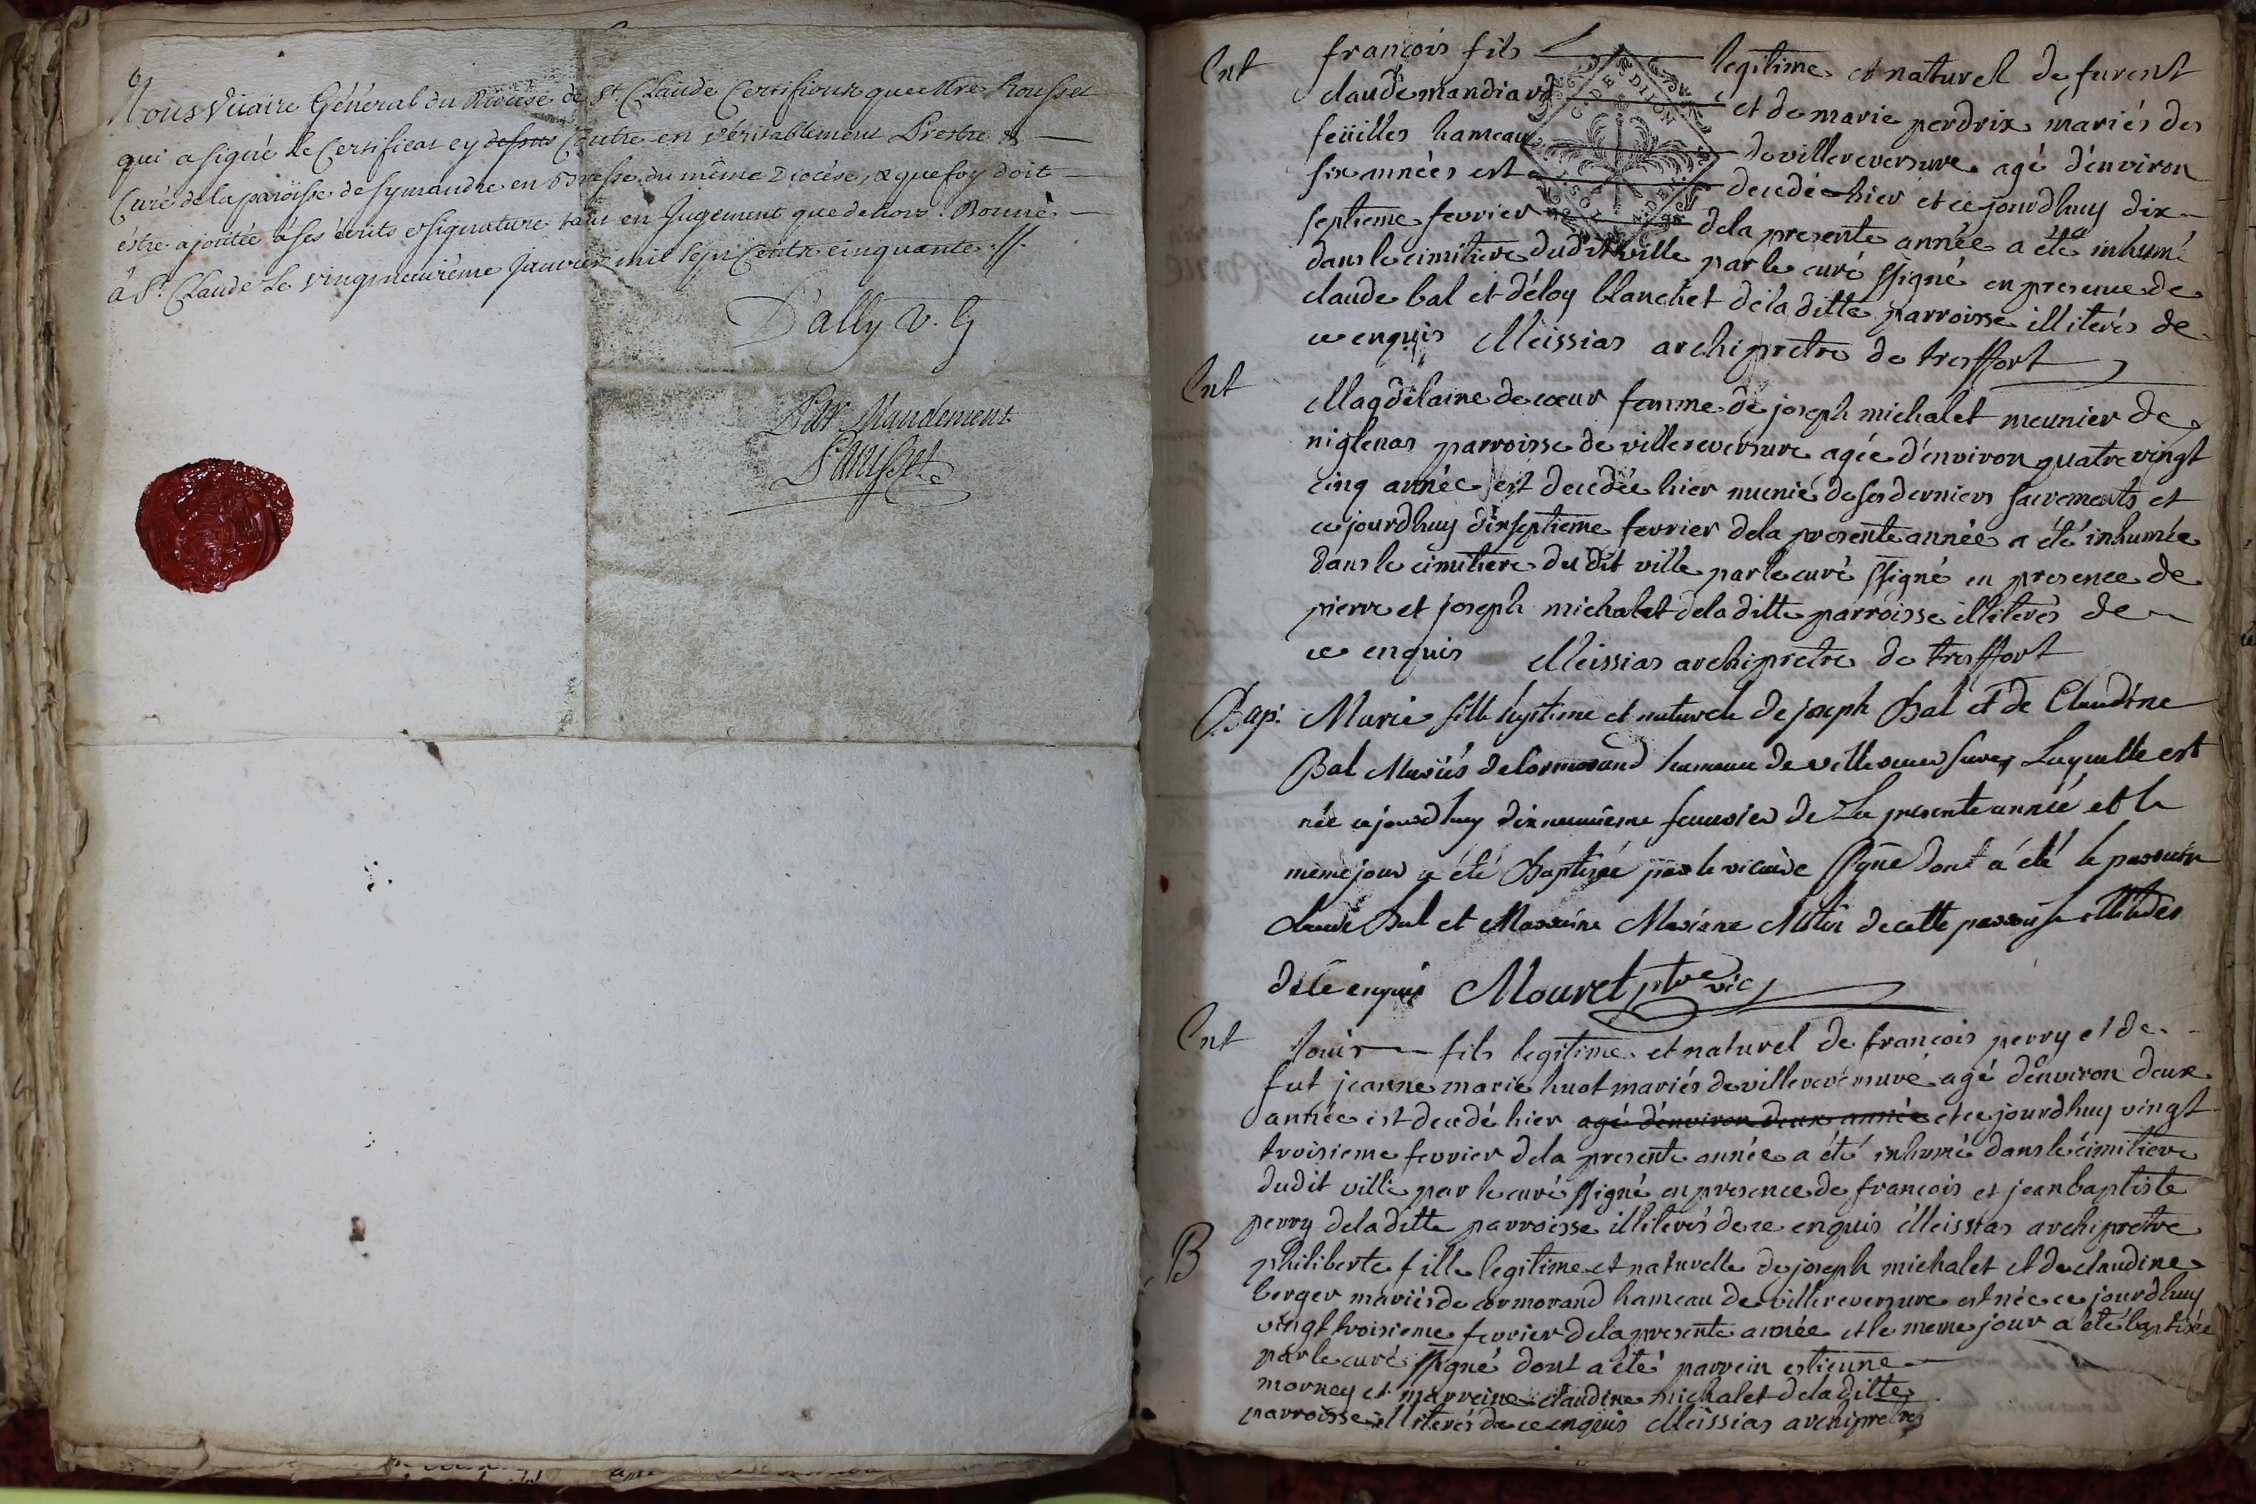 Nous Vicaire Général du Diocese de St Claude Certifions que Mre Rousset
qui a signé le Certificat cy dessus Contre en véritablement Prestre &
Curé de la paroisse de Symandre en Bresse du même Diocèse, & que foy doit
éstre ajoutée à ses écrits & signature tant en Jugement que dehors. Donné
à St. Claude le vingtneuvième Janvier mil sept Cents cinquante .//.
Dally V. G
Par Mandement
Ent
françois fils legitime et naturel de furent
claude mandiard et de marie perdrix mariés des
feüilles hameau de villereversure agé d'environ
six années est decedé hier et ce jourdhuy dix
septieme fevrier dela presente année a été inhumé
dans le cimitiere dudit ville par le curé ssigné en presence de
claude bal et d'éloy blanchet dela ditte parroisse illiterés de
ce enquis Meissias archiprêtre de treffort
C. DE DIJON
Ent
Magdelaine de coeur femme de joseph michalet meunier de
niglenas parroisse de villereversure agée d'environ quatre vingt
cinq année est decedée hier munie de ses derniers sacrements et
ce jourdhuy dixseptieme fevrier dela presente année a été inhumée
dans le cimitiere du dit ville par le curé ssigné en presence de
pierre et joseph michalet dela ditte parroisse illiterés de
ce enquis Meissias archiprêtre de treffort
Bap.
Marie fille legitime et naturele de joseph Bal et de Claudine
Bal Mariés de Cormorand hameau de villereversure, Laquelle est
née ce jourdhuy dixneuvieme fevrier de La presente année et le
même jour a été Baptisée par le vicaire ssigne dont a été le parrain
Claude Bal et Marraine Mariane de cette parroisse illiteres
de ce enquis Mouret ptre vic
Ent
Louis fils legitime et naturel de françois perry et de
fut jeanne marie huot mariés de villereversure agé d'environ deux
année est decedé hier agé d'environ deux année et ce jourdhuy vingt
troisieme fevrier dela presente année a été inhumé dans le cimitiere
dudit ville par le curé ssigné en presence de françois et jean baptiste
perry dela ditte parroisse illiterés de ce enquis Meissias archiprêtre
B
philiberte fille legitime et naturelle de joseph michalet et de claudine
berger mariés de cormorand hameau de villereversure est née ce jourdhuy
vingt troisieme fevrier dela presente année et le meme jour a été baptisée
par le curé ssigné dont a été parrein estienne
mornay et marreine claudine michalet dela ditte
parroisse illiterés de ce enquis Meissias archiprêtre